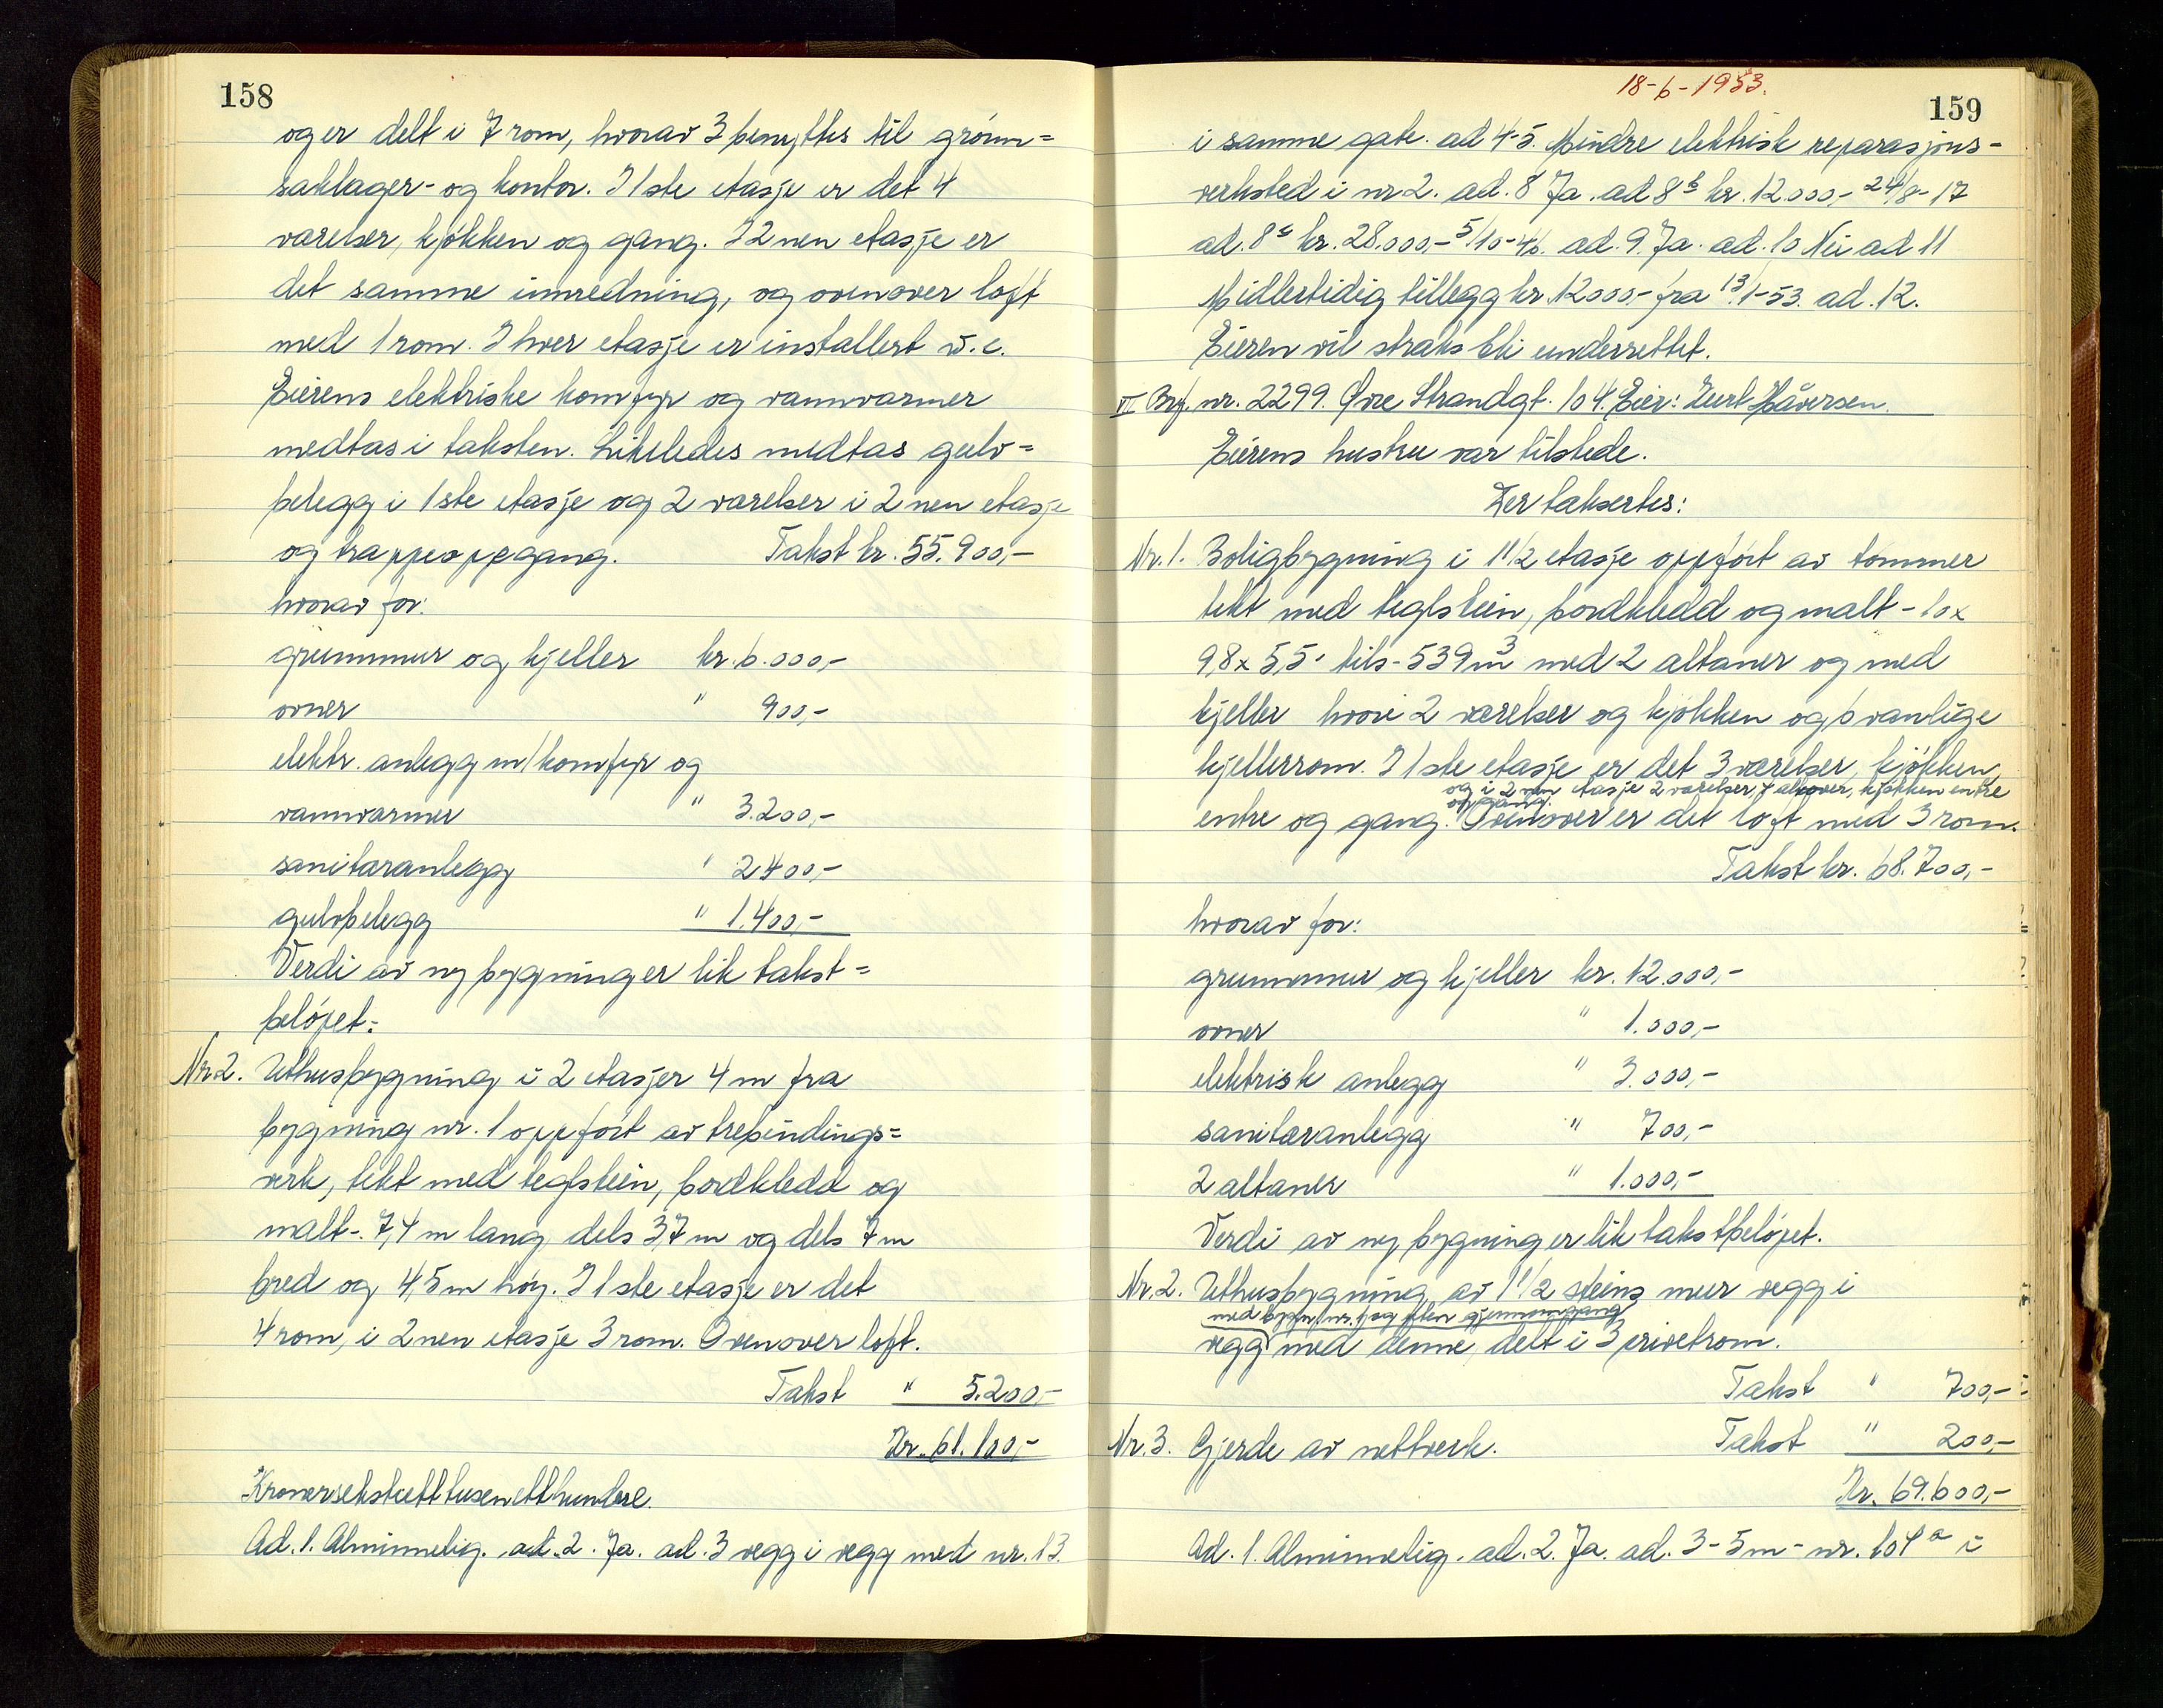 158
og er delt i 7 rom, hvorav 3 benyttes til grønn=
saklager- og kontor. I 1ste etasje er det 4
værelser, kjøkken og gang. I 2nen etasje er
det samme innredning, og ovenover loft
med 1 rom. I hver etasje er installert w.c.
Eierens elektriske komfyr og vannvarmer
medtas i taksten. Likeledes medtas gulv=
belegg i 1ste etasje og 2 værelser i 2nen etasje
og trappeoppgang. Takst kr. 55.900,-
hvorav for:
grunnmur og kjeller kr. 6.000,-
ovner " 900,-
elektr. anlegg m/komfyr og
vannvarmer " 3.200,-
sanitæranlegg " 2400,-
gulvbelegg " 1.400,-
Verdi av ny bygning er lik takst=
beløpet.
Nr. 2. Uthusbygning i 2 etasjer 4 m fra
bygning nr. 1 oppført av trebindings=
verk, tekt med teglstein, bordkledd og
malt-. 7,4 m lang dels 3,7 m og dels 7 m
bred og 4,5 m høy. I 1ste etasje er det
4 rom, i 2nen etasje 3 rom. Ovenover loft.
Takst " 5.200,-
Kr. 61.100,-
Kroner sekstiett tusen etthundre.
Ad. 1. Alminnelig. ad. 2. Ja. ad. 3 vegg i vegg med nr. 13.
18-6-1953.
159
i samme gate. ad 4-5. Mindre elektrisk reparasjons-
verksted i nr 2. ad. 8 Ja. ad 8b kr. 12.000,- 24/8-17
ad. 8c kr. 28.000,- 5/10-46. ad. 9. Ja. ad. 10 Nei ad 11
Midlertidig tillegg kr. 12000,- fra 13/1-53. ad. 12.
Eieren vil straks bli underrettet.
VI Brf. nr. 2299. Øvre Strandgt. 104. Eier: Kurt Håversen.
Eierens hustru var tilstede.
Der taksertes:
Nr. 1. Boligbygning i 1 1/2 etasje oppført av tømmer
tekt med teglstein, bordkledd og malt - 10 x
9,8 x 5,5 · tils - 539 m3 med 2 altaner og med
kjeller hvori 2 værelser og kjøkken og 6 vanlige
kjellerrom. I 1ste etasje er det 3 værelser, kjøkken,
og i 2nen etasje 2 værelser, 7 alkover, kjøkken entre
og gang.
entre og gang. Ovenover er det loft med 3 rom.
Takst kr. 68.700,-
hvorav for:
grunnmur og kjeller kr. 12.000,-
ovner " 1.000,-
elektrisk anlegg " 3.000,-
sanitæranlegg " 700,-
2 altaner " 1.000,-
Verdi av ny bygning er lik takstbeløpet.
Nr. 2. Uthusbygning av 1 1/2 steins mur vegg i
med bygn. nr. 1 og uten gjennomgang
vegg med denne, delt i 3 privetrom.
Takst " 700,-
Nr. 3. Gjerde av nettverk. Takst " 200,-
Kr. 69.600,-
Ad. 1. Alminnelig. ad. 2. Ja. ad. 3 - 5 m - nr. 104a i